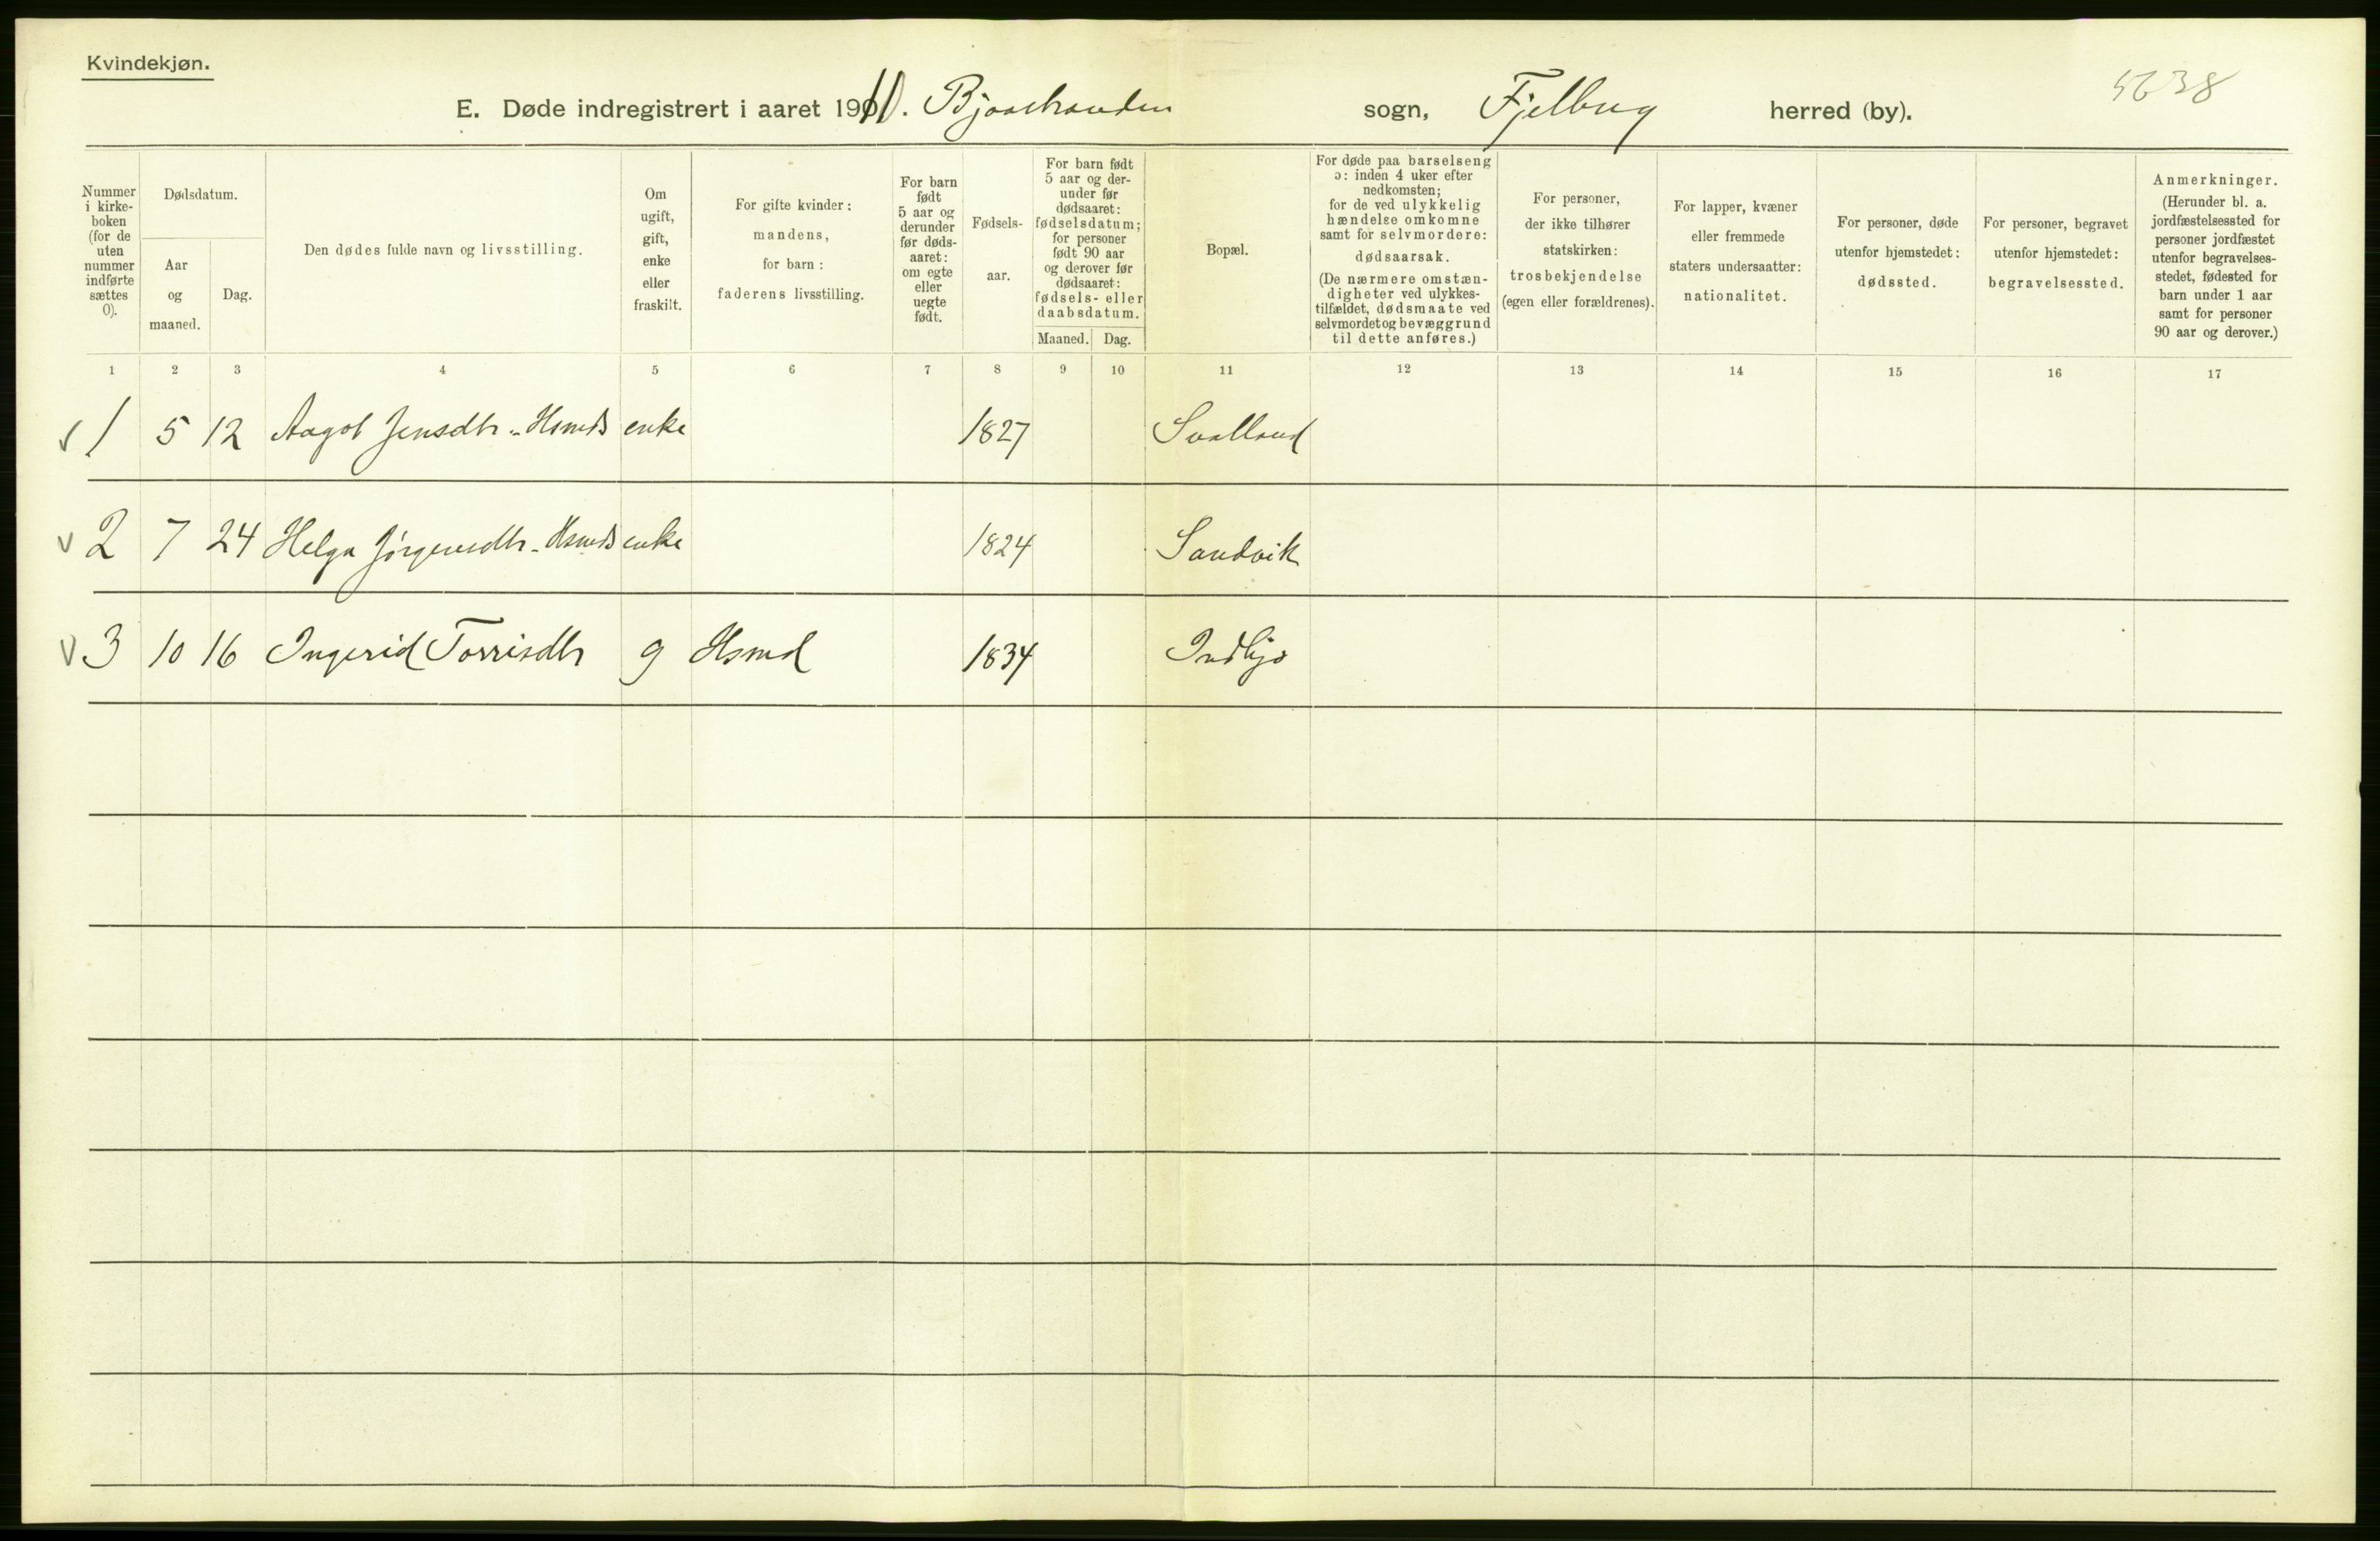 Kvindekjøn.
E. Døde indregistrert i aaret 1910. Bjoachanden sogn, Fjelbrug herred (by).
5638
Nummer i kirkeboken (for de uten nummer indførte sættes 0).
Dødsdatum.
Aar og maaned.
Dag.
Den dødes fulde navn og livsstilling.
Om ugift, gift, enke eller fraskilt.
For gifte kvinder: mandens, for barn: faderens livsstilling.
For barn født 5 aar og derunder før dødsaaret: om egte eller uegte født.
Fødselsaar.
For barn født 5 aar og derunder før dødsaaret: fødselsdatum; for personer født 90 aar og derover før dødsaaret: fødsels- eller daabsdatum.
Maaned. Dag.
Bopæl.
For døde paa barselseng ɔ: inden 4 uker efter nedkomsten; for de ved ulykkelig hændelse omkomne samt for selvmordere: dødsaarsak. (De nærmere omstændigheter ved ulykkestilfældet, dødsmaate ved selvmordet og bevæggrund til dette anføres.)
For personer, der ikke tilhører statskirken: trosbekjendelse (egen eller forældrenes).
For lapper, kvæner eller fremmede staters undersaatter: nationalitet.
For personer, døde utenfor hjemstedet: dødssted.
For personer, begravet utenfor hjemstedet: begravelsessted.
Anmerkninger. (Herunder bl. a. jordfæstelsessted for personer jordfæstet utenfor begravelsesstedet, fødested for barn under 1 aar samt for personer 90 aar og derover.)
1 2 3 4 5 6 7 8 9 10 11 12 13 14 15 16 17
v 1 5 12 Aagot Jensdtr - Hsmds enke 1827 Svalland
v 2 7 24 Helga Jørgensdtr - Hsmds enke 1824 Sandvik
v 3 10 16 Ingerid Torrisdtr g Hsmd 1834